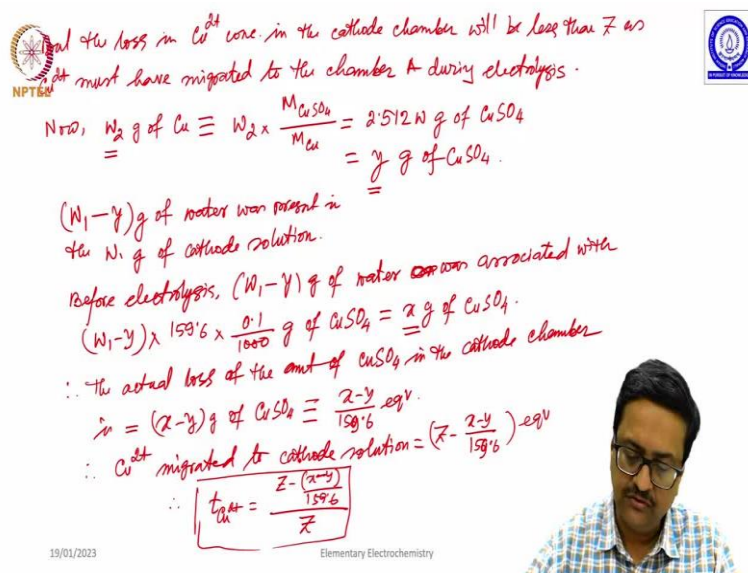 the loss in Cu²⁺ conc. in the cathode chamber will be less than Z as
Cu²⁺ must have migrated to the chamber A during electrolysis.
NPTEL
Now, W₂ g of Cu ≡ W₂ × M_CuSO₄ / M_Cu = 2.512 W g of CuSO₄
= y g of CuSO₄.
(W₁ − y) g of water was present in
the W₁ g of cathode solution.
Before electrolysis, (W₁ − y) g of water was associated with
(W₁ − y) × 159.6 × 0.1/1000 g of CuSO₄ = x g of CuSO₄.
∴ The actual loss of the amt of CuSO₄ in the cathode chamber
is = (x − y) g of CuSO₄ ≡ (x − y)/159.6 eqv.
∴ Cu²⁺ migrated to cathode solution = (Z − (x − y)/159.6) eqv
∴ t_Cu²⁺ = (Z − (x − y)/159.6) / Z
19/01/2023
Elementary Electrochemistry